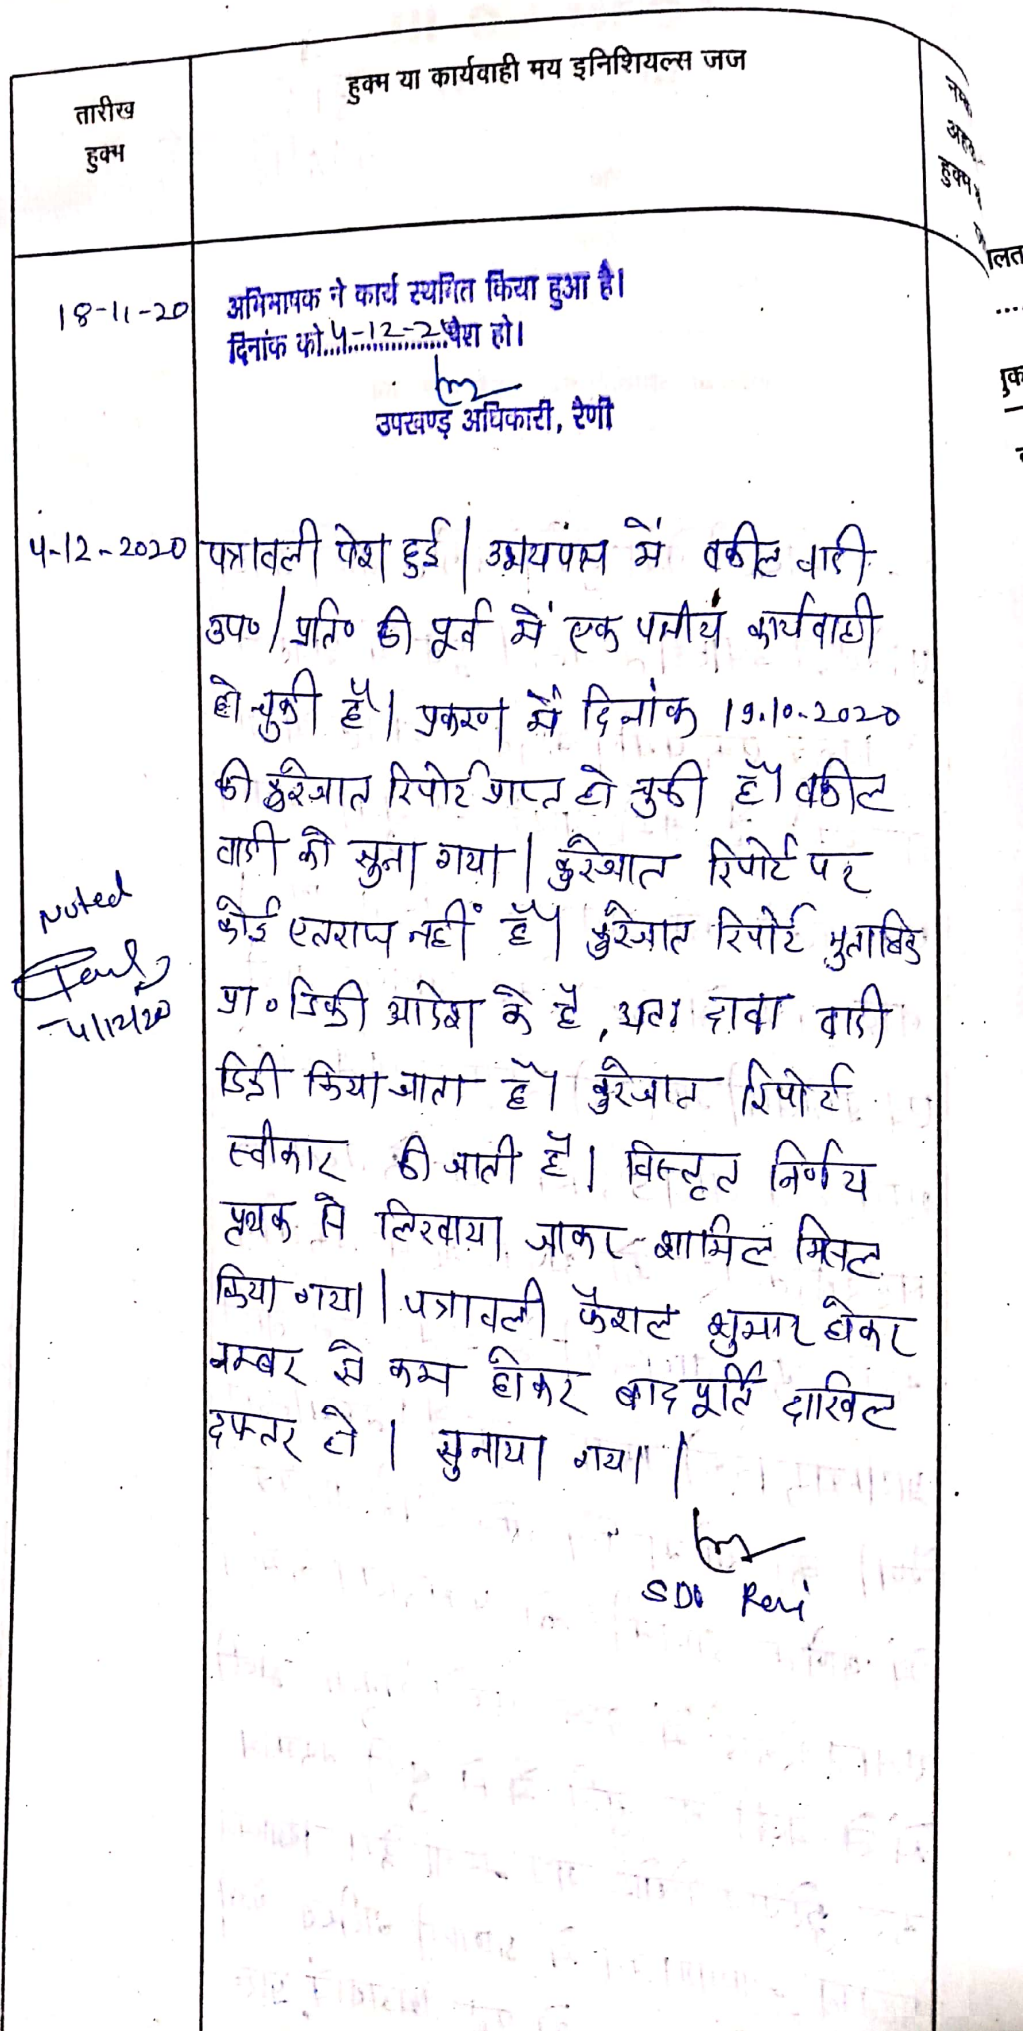 तारीख
हुक्म
हुक्म या कार्यवाही मय इनिशियल्स जज
हुक्म
18-11-20
अभिभाषक ने कार्य स्थगित किया हुआ है।
दिनांक को 4-12-2 पेश हो।
उपखण्ड अधिकारी, रैणी
4-12-2020
पत्रावली पेश हुई। उभयपक्ष में वकील वादी
उप०/प्रति० की पूर्व में एक पक्षीय कार्यवाही
हो चुकी है। प्रकरण में दिनांक 19.10.2020
की कुरेजात रिपोर्ट प्राप्त हो चुकी है। वकील
वादी को सुना गया। कुरेजात रिपोर्ट पर
कोई एतराज नहीं है। कुरेजात रिपोर्ट मुताबिक
प्रा० डिक्री आदेश के है, अतः दावा वादी
डिक्री किया जाता है। कुरेजात रिपोर्ट
स्वीकार की जाती है। विस्तृत निर्णय
पृथक से लिखाया जाकर शामिल मिसल
किया गया। पत्रावली फैशल शुमार होकर
नम्बर से कम होकर बाद पूर्ति दाखिल
दफ्तर हो। सुनाया गया।
Noted
4/12/20
SDO Reni
लित